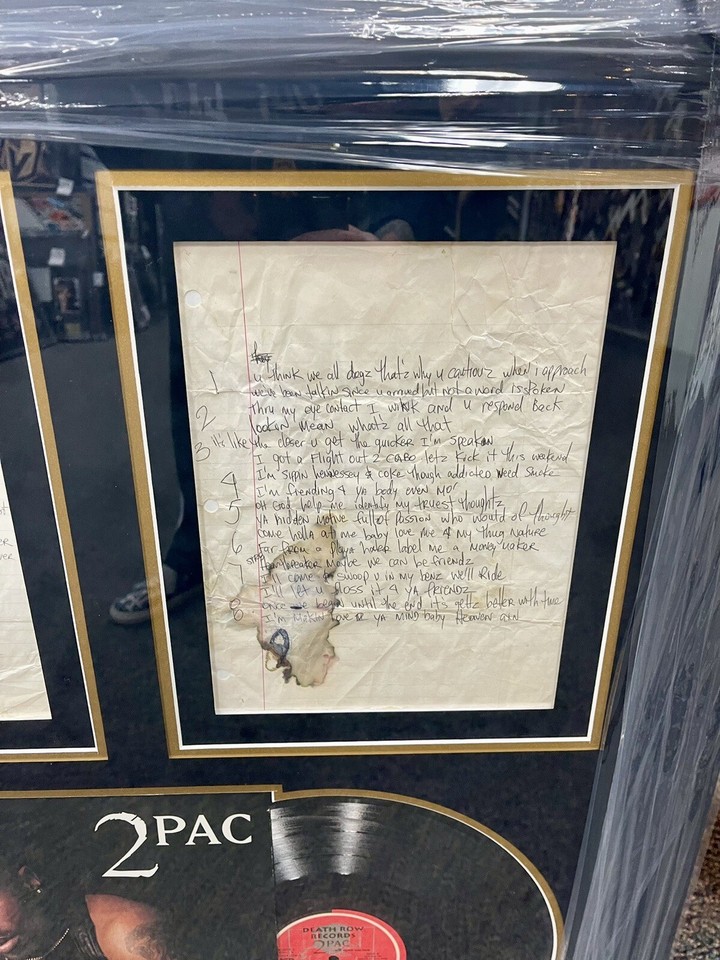 1 u think we all dogz that'z why u cautiouz when i approach
we've been talkin since u arrived but not a word is spoken
2 thru my eye contact I wink and u respond Back
lookin Mean whatz all that
3 it's like the closer u get the quicker I'm speakin
I got a Flight out 2 CABO letz Kick it this weekend
4 I'm sippin hennessey & coke though addicted weed smoke
I'm fiending 4 ya body even Mo'
5 OH God help me identify my truest thoughtz
YA hidden motive full of passion who would of thought
6 come holla at me baby love me 4 my thug nature
Far from a playa hater label me a money maker
7 Heartbreaker maybe we can be friendz
I'll come & swoop u in my benz we'll Ride
I'll let u floss it 4 ya friendz
8 once we begin until the end it's gettz better with time
I'm makin love 2 YA MIND baby Heaven ain
2PAC
DEATH ROW
RECORDS
2PAC